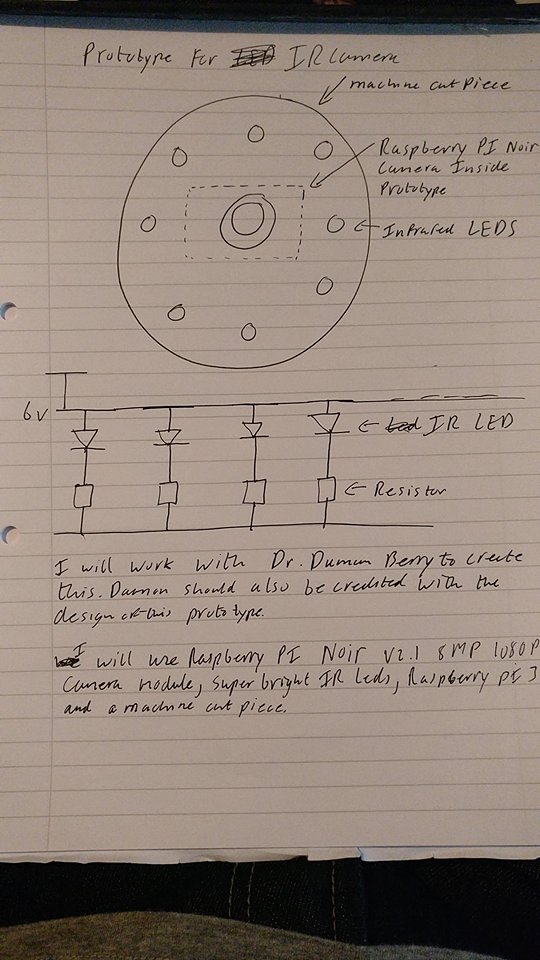 Prototype for LED IR Camera
machine cut piece
Raspberry PI Noir
Camera Inside
Prototype
Infrared LEDS
6v
Led IR LED
Resistor
I will work with Dr. Damon Berry to create
this. Damon should also be credited with the
design of this prototype.
I will use Raspberry PI Noir V2.1 8MP 1080P
Camera Module, super bright IR leds, Raspberry pi 3
and a machine cut piece.